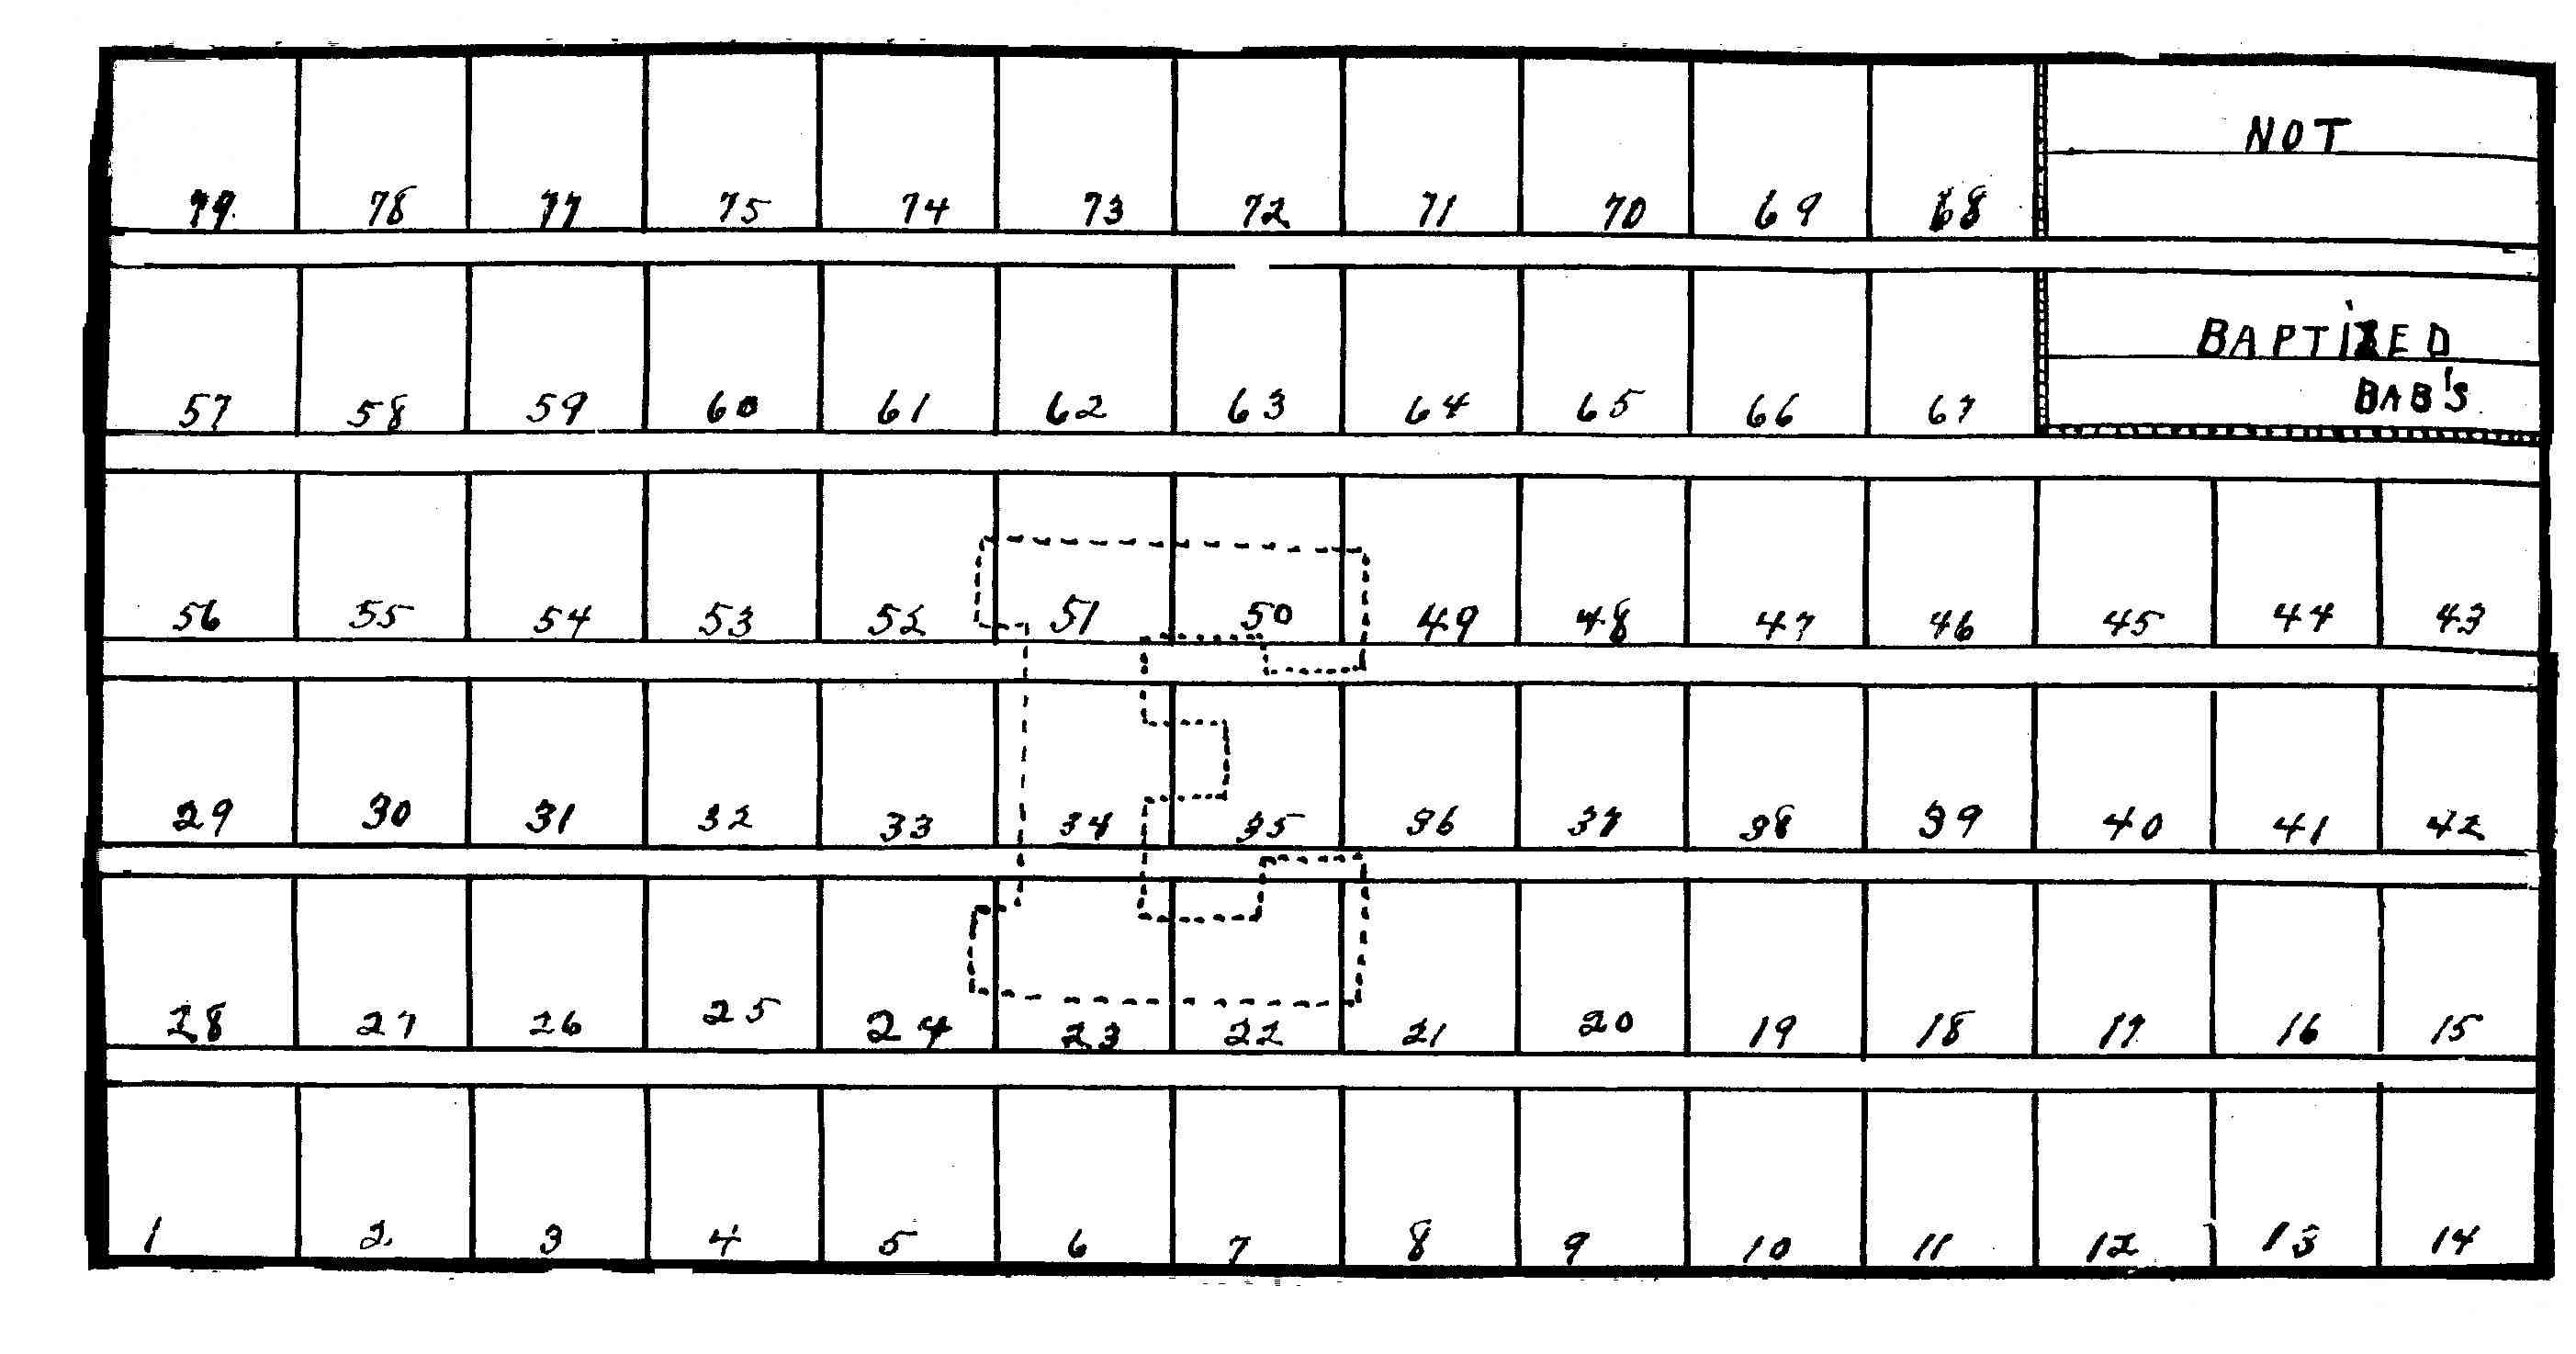 79 78 77 75 74 73 72 71 70 69 68 NOT
57 58 59 60 61 62 63 64 65 66 67 BAPTIZED
BAB'S
56 55 54 53 52 51 50 49 48 47 46 45 44 43
29 30 31 32 33 34 35 36 37 38 39 40 41 42
28 27 26 25 24 23 22 21 20 19 18 17 16 15
1 2 3 4 5 6 7 8 9 10 11 12 13 14